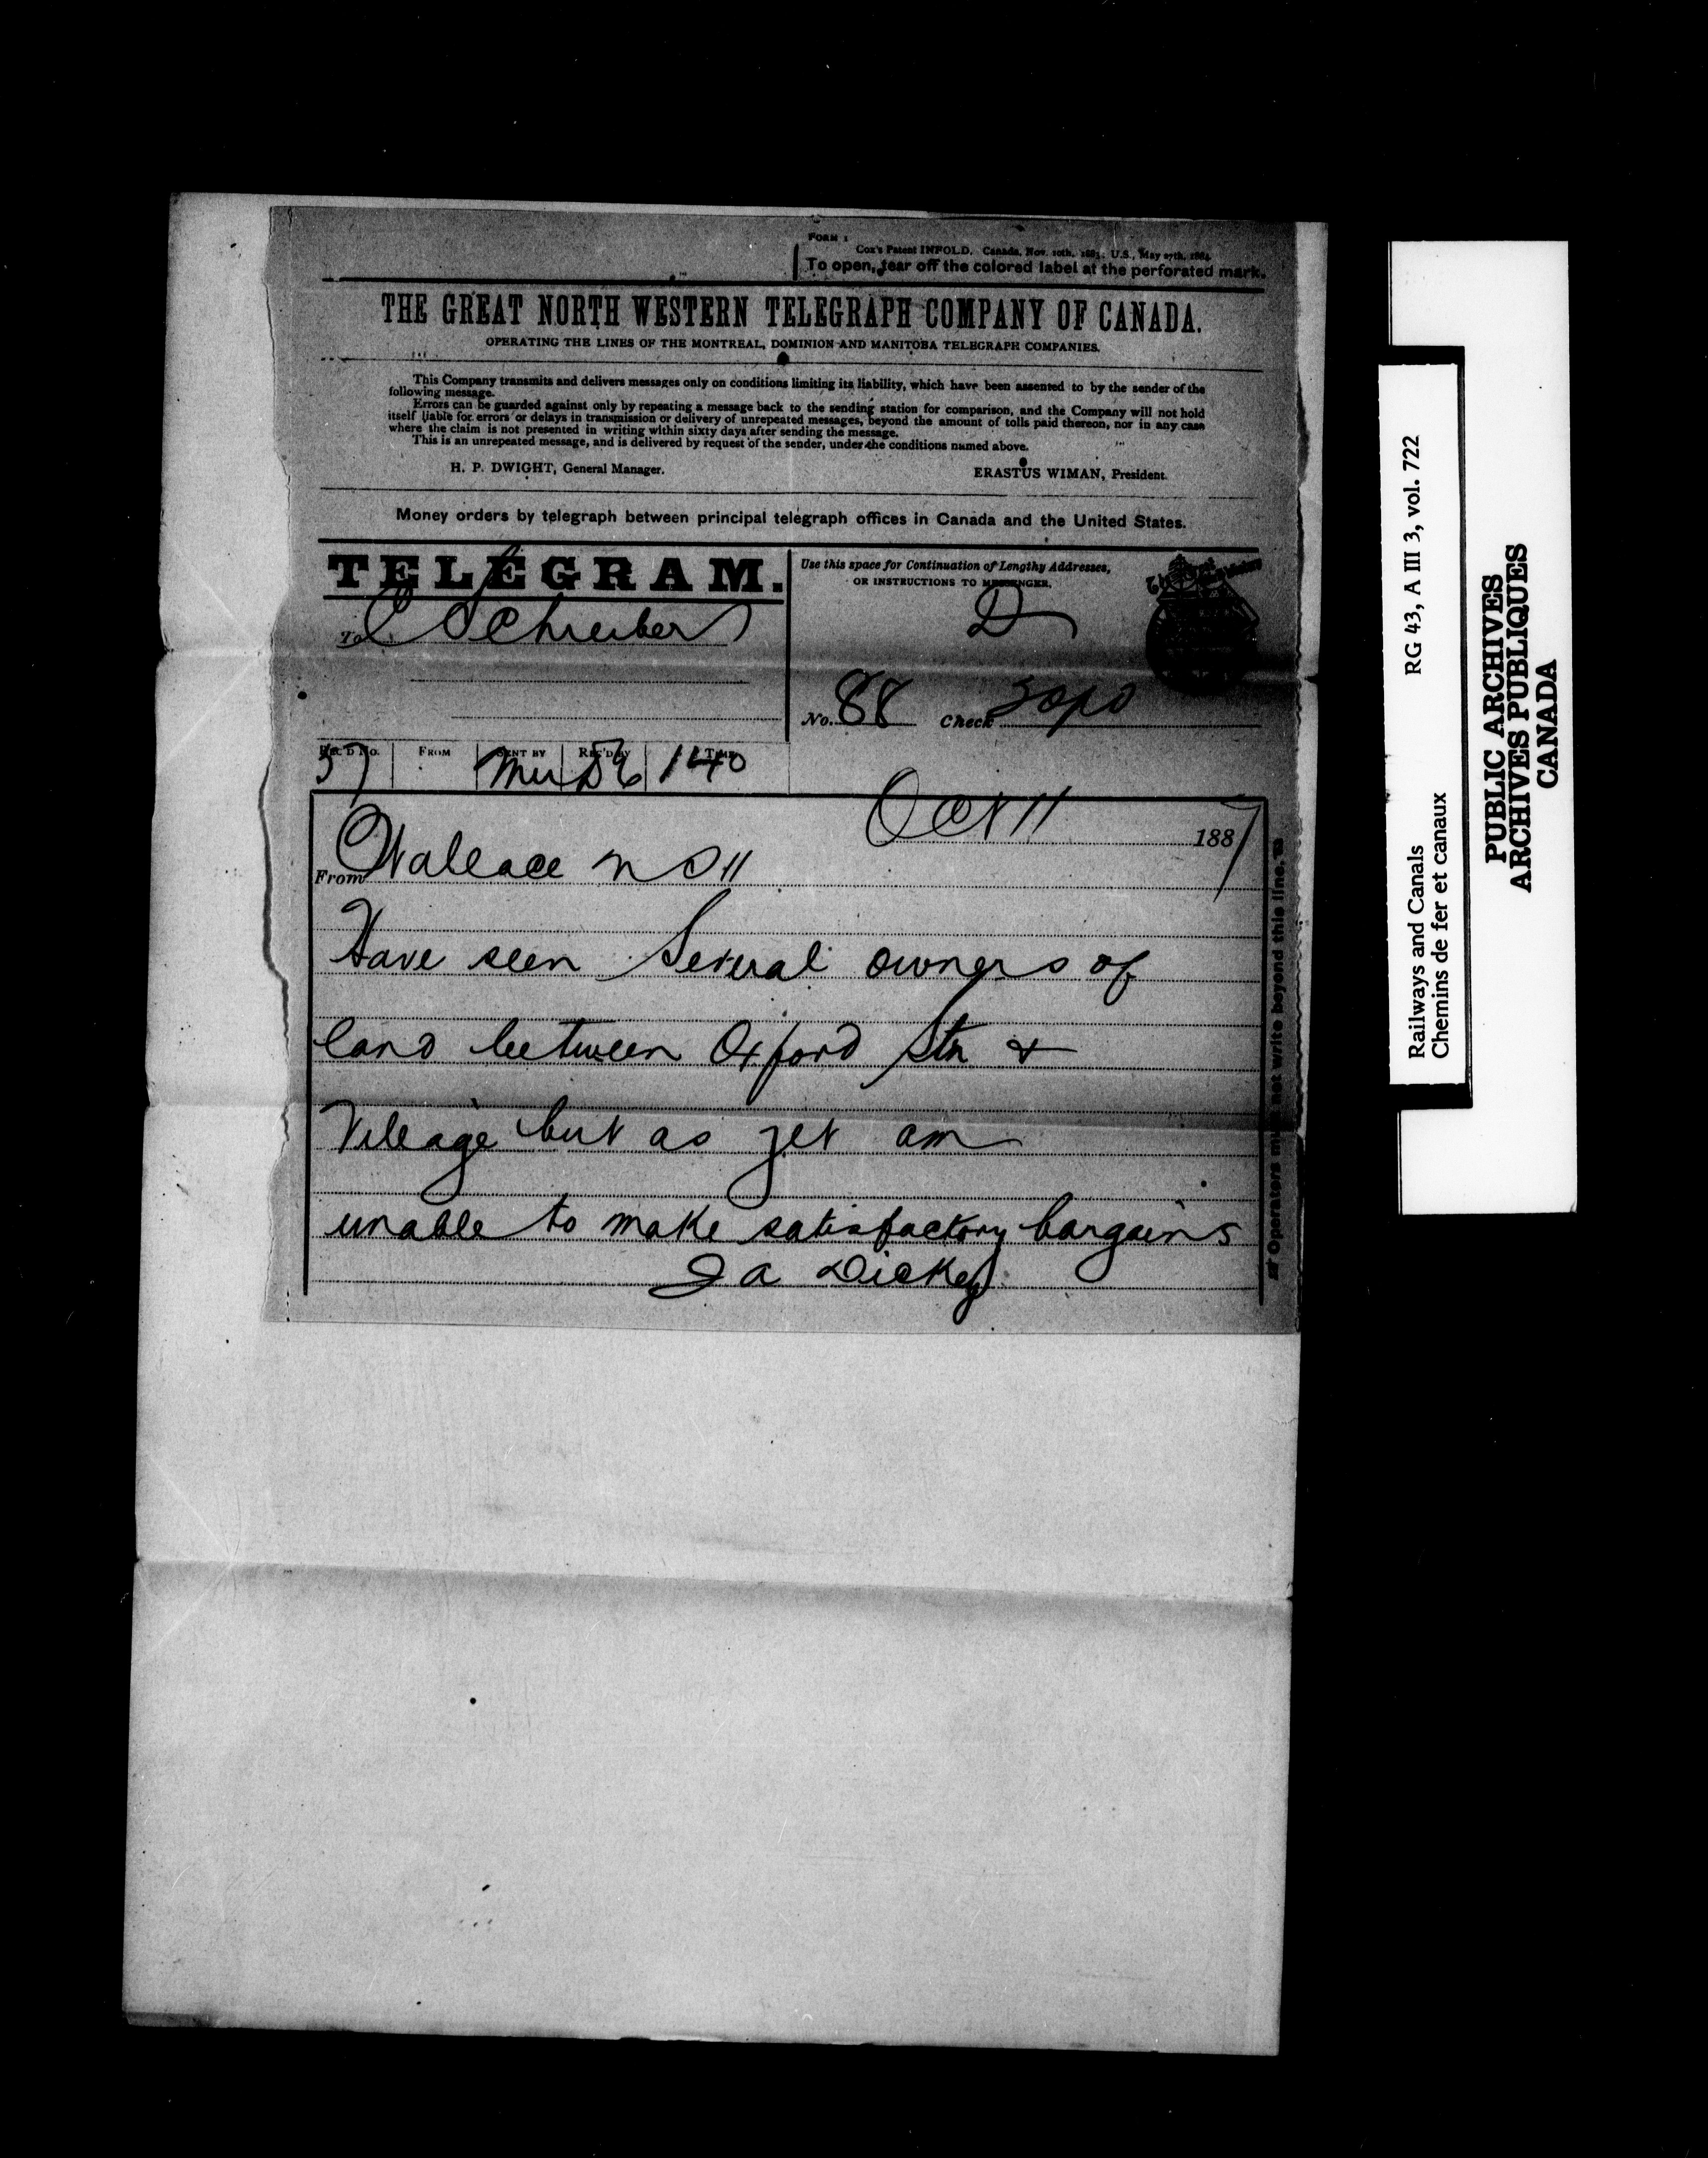 FORM 1
Cox's Patent INFOLD. Canada, Nov. 10th, 1883. U.S., May 27th, 1884
To open, tear off the colored label at the perforated mark.
THE GREAT NORTH WESTERN TELEGRAPH COMPANY OF CANADA.
OPERATING THE LINES OF THE MONTREAL, DOMINION AND MANITOBA TELEGRAPH COMPANIES.
This Company transmits and delivers messages only on conditions limiting its liability, which have been assented to by the sender of the
following message.
Errors can be guarded against only by repeating a message back to the sending station for comparison, and the Company will not hold
itself liable for errors or delays in transmission or delivery of unrepeated messages, beyond the amount of tolls paid thereon, nor in any case
where the claim is not presented in writing within sixty days after sending the message.
This is an unrepeated message, and is delivered by request of the sender, under the conditions named above.
H. P. DWIGHT, General Manager. ERASTUS WIMAN, President.
Money orders by telegraph between principal telegraph offices in Canada and the United States.
TELEGRAM.
Use this space for Continuation of Lengthy Addresses,
OR INSTRUCTIONS TO MESSENGER.
To C Schreiber
D
No. 88 Check
REC'D No. FROM SENT BY REC'D BY TIME
57 140
Oct 11 1887
From Wallace N S 11
Have seen Several owners of
land between Oxford Stn &
Village but as yet am
unable to make satisfactory bargains
J A Dickey
Operators must not write beyond this line.
Railways and Canals RG 43, A III 3, vol. 722
Chemins de fer et canaux
PUBLIC ARCHIVES
ARCHIVES PUBLIQUES
CANADA